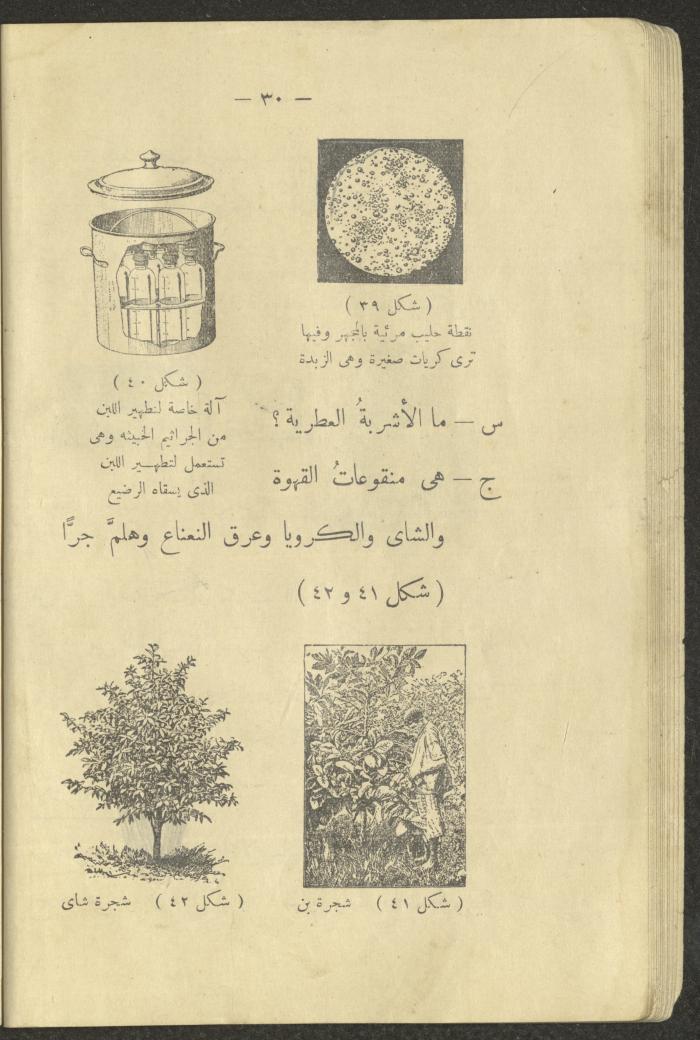 — ٣٠ —
( شكل ٣٩ )
نقطة حليب مرئية بالمجهر وفيها
ترى كريات صغيرة وهى الزبدة
( شكل ٤٠ )
آلة خاصة لتطهير اللبن
من الجراثيم الخبيثه وهى
تستعمل لتطهـير اللبن
الذى يسقاه الرضيع
س — ما الأشربةُ العطرية ؟
ج — هى منقوعاتُ القهوة
والشاى والكرويا وعرق النعناع وهلمَّ جرًّا
( شكل ٤١ و ٤٢ )
( شكل ٤١ ) شجرة بن
( شكل ٤٢ ) شجرة شاى